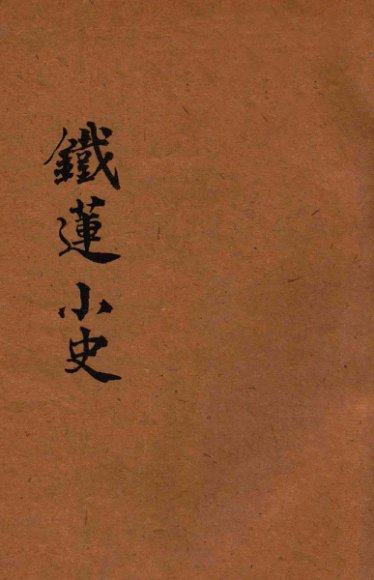 鐵蓮小史